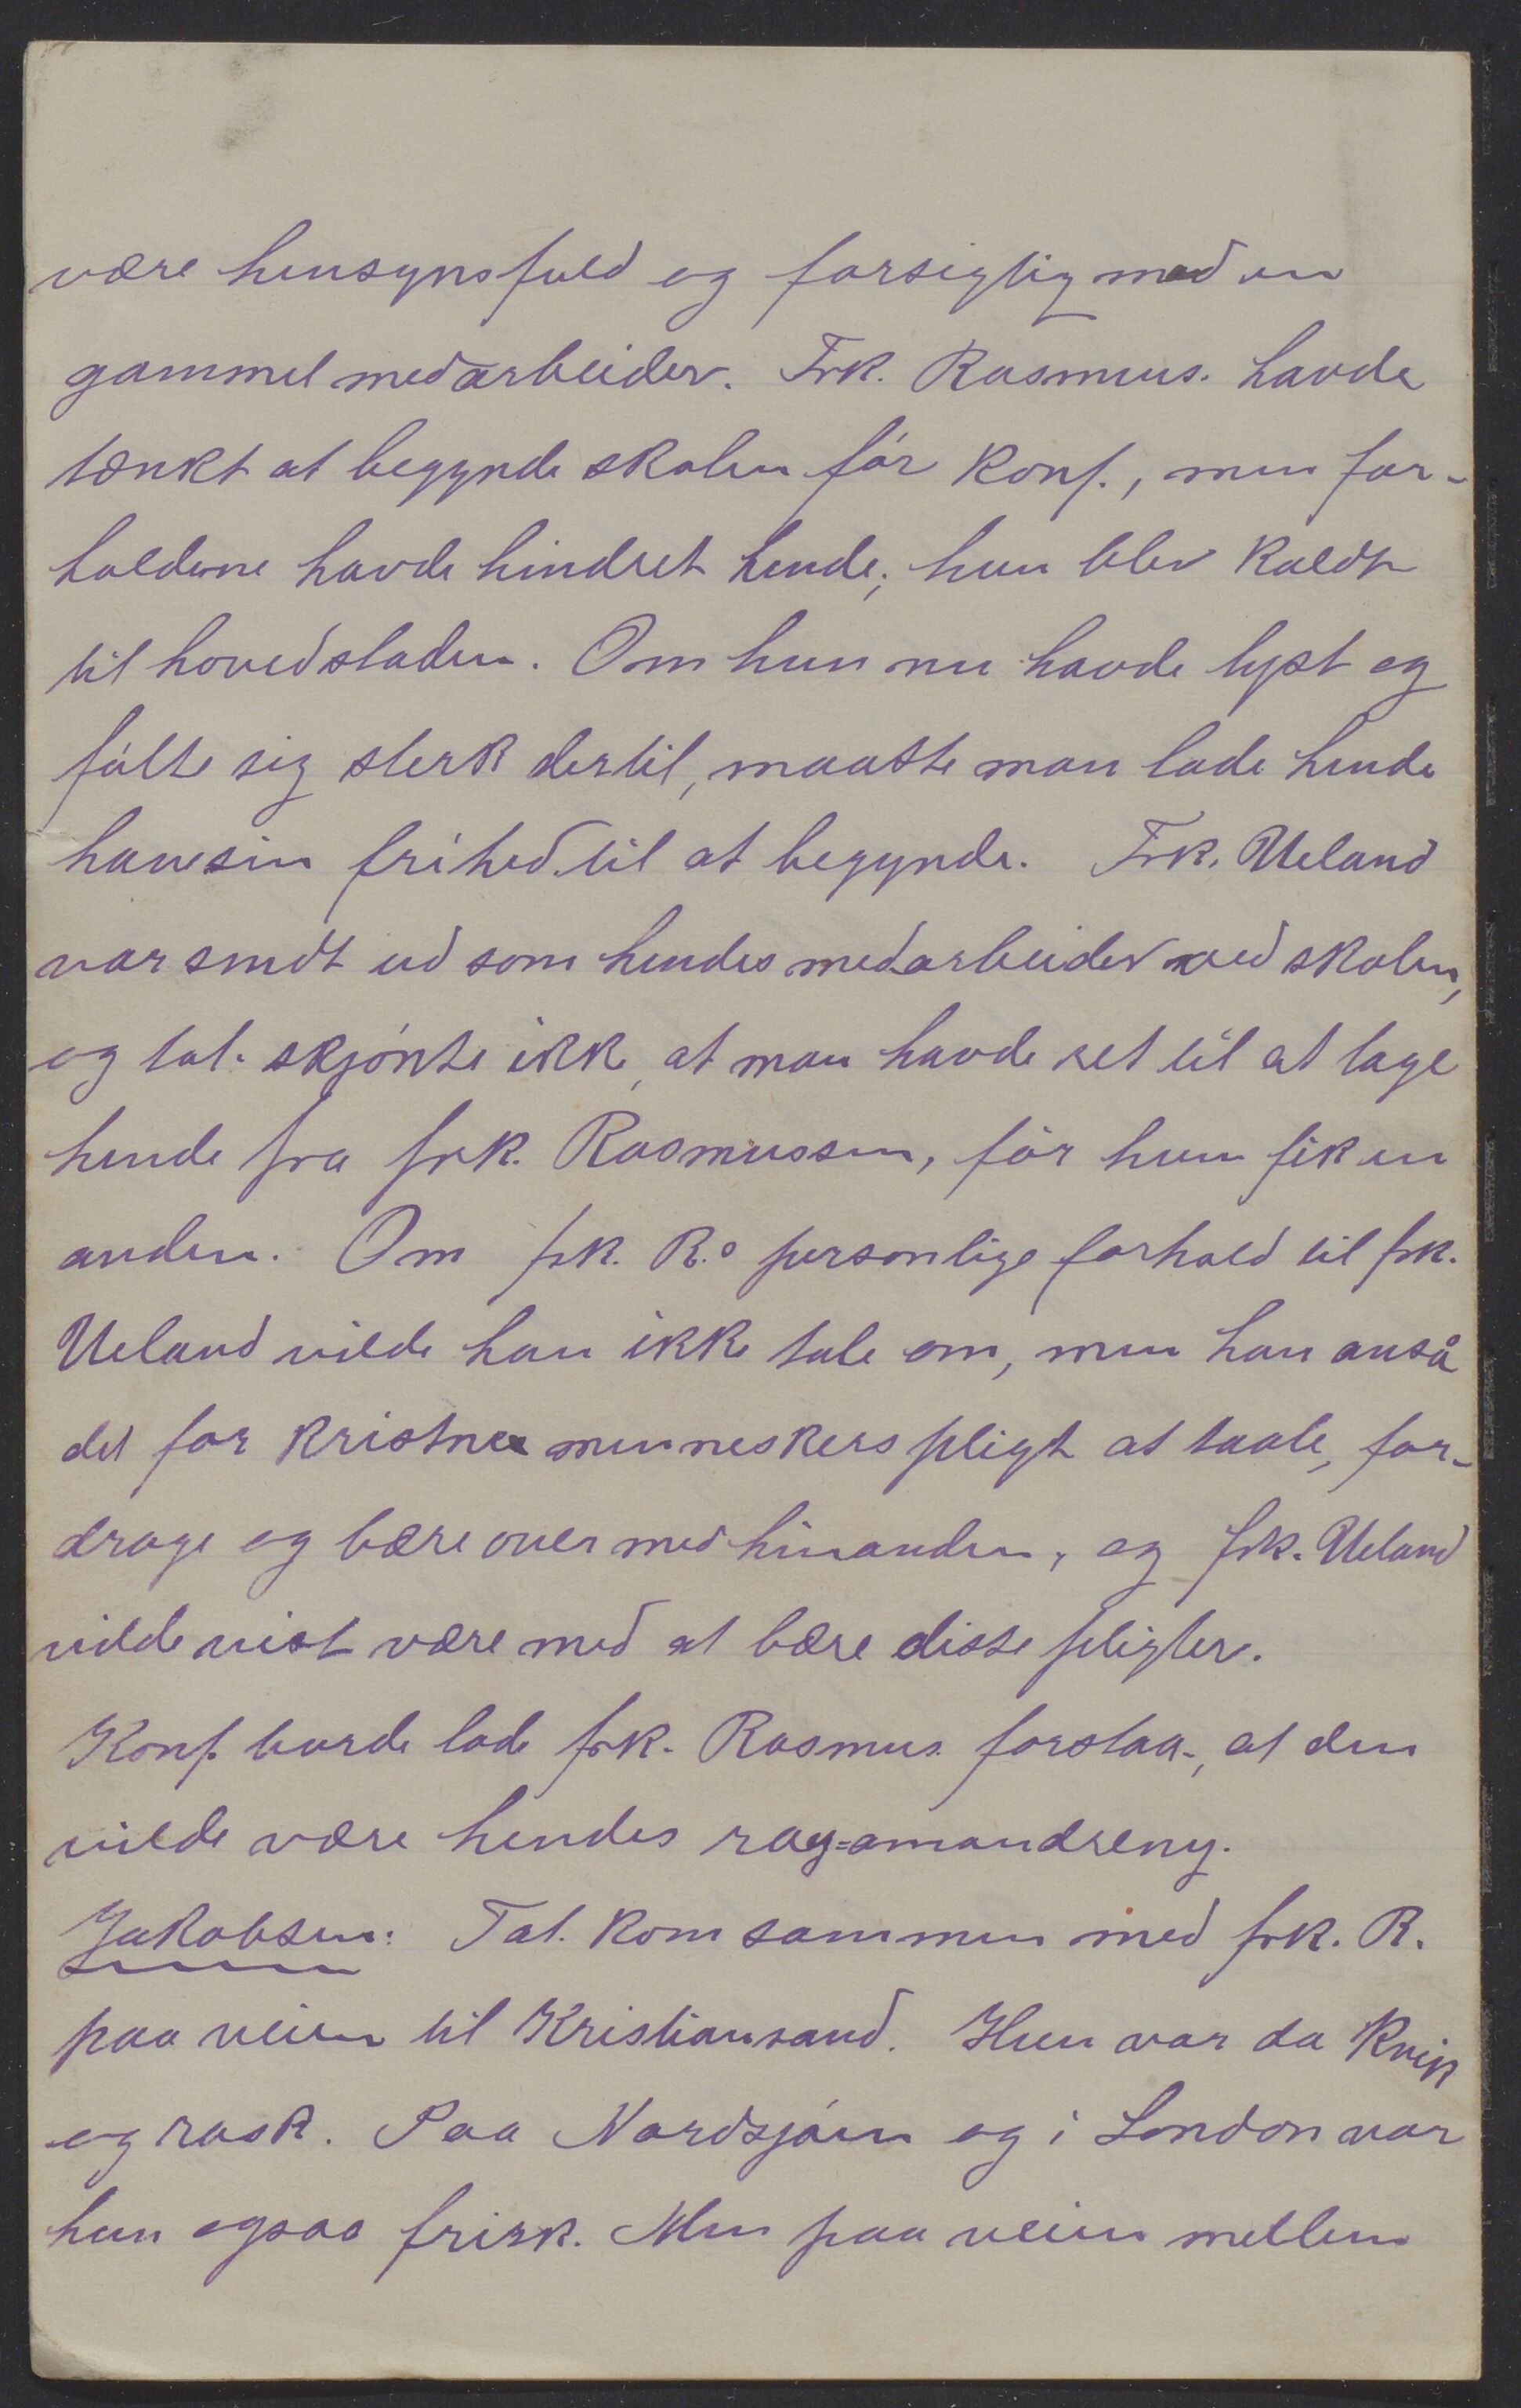 være hensynsfuld og forsigtig med en
gammel medarbeider. Frk. Rasmus. havde
tænkt at begynde skolen før konf., men for-
holdene havde hindret hende; hun blev kaldt
til hovedstaden. Om hun nu havde lyst og
følte sig sterk dertil, maatte man lade hende
have sin frihed til at begynde. Frk. Ueland
var sendt ud som hendes medarbeider ved skolen,
og tal. skjønte ikke, at man havde ret til at tage
hende fra frk. Rasmussen, før hun fik en
anden. Om frk. R.s personlige forhold til frk.
Ueland vilde han ikke tale om, men han anså
det for kristne menneskers pligt at taale, for-
drage og bære over med hinanden, og frk. Ueland
vilde vist være med at bære disse pligter.
Konf. burde lade frk. Rasmus. forstaa, at den
vilde være hendes ray-amandreny.
Jakobsen: Tal. kom sammen med frk. R.
paa veien til Kristiansand. Hun var da kvik
og rask. Paa Nordsjøen og i London var
hun ogsaa frisk. Men paa veien mellem